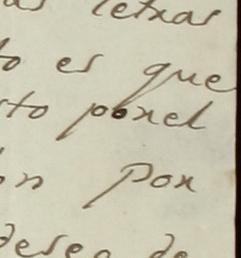 as letras
to es que
sto porel
on por
deseo de